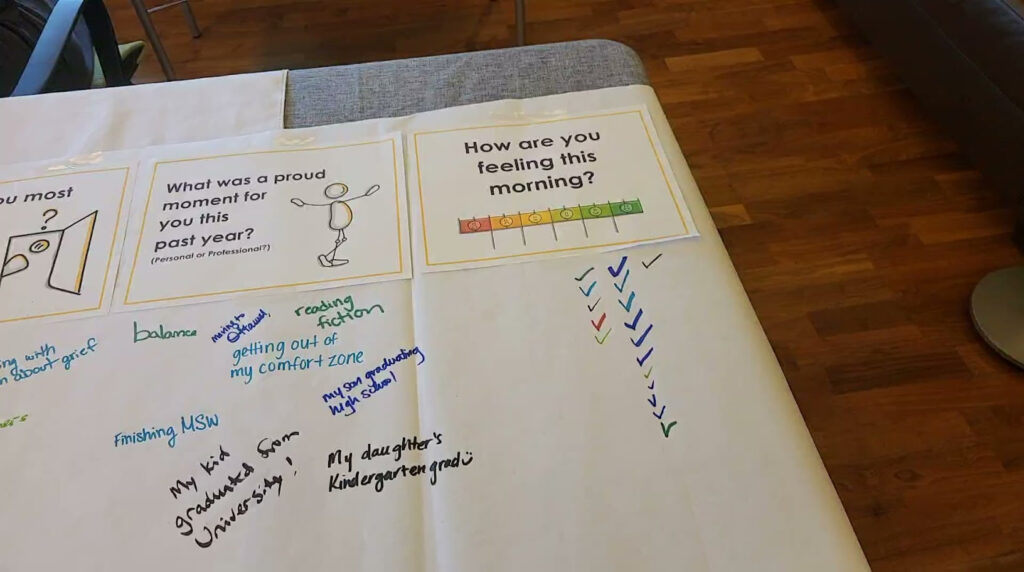 ou most
?
What was a proud
moment for
you this
past year?
(Personal or Professional?)
How are you
feeling this
morning?
ing with
about grief
balance
moving to
Ottawa!
reading
fiction
getting out of
my comfort zone
my son graduating
high school
Finishing MSW
My kid
graduated from
University!
My daughter's
Kindergarten grad